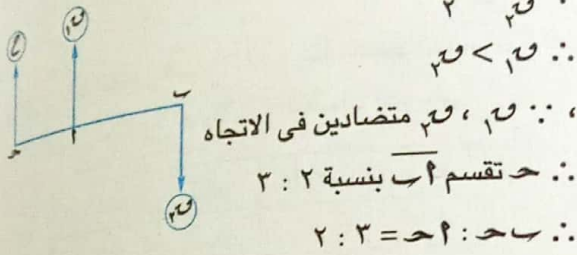 ∴ ق١ > ق٢
، ∵ ق١ ، ق٢ متضادين فى الاتجاه
∴ حـ تقسم أب بنسبة ٢ : ٣
∴ ب حـ : أ حـ = ٣ : ٢
ح
ق١
ب
أ
حـ
ق٢